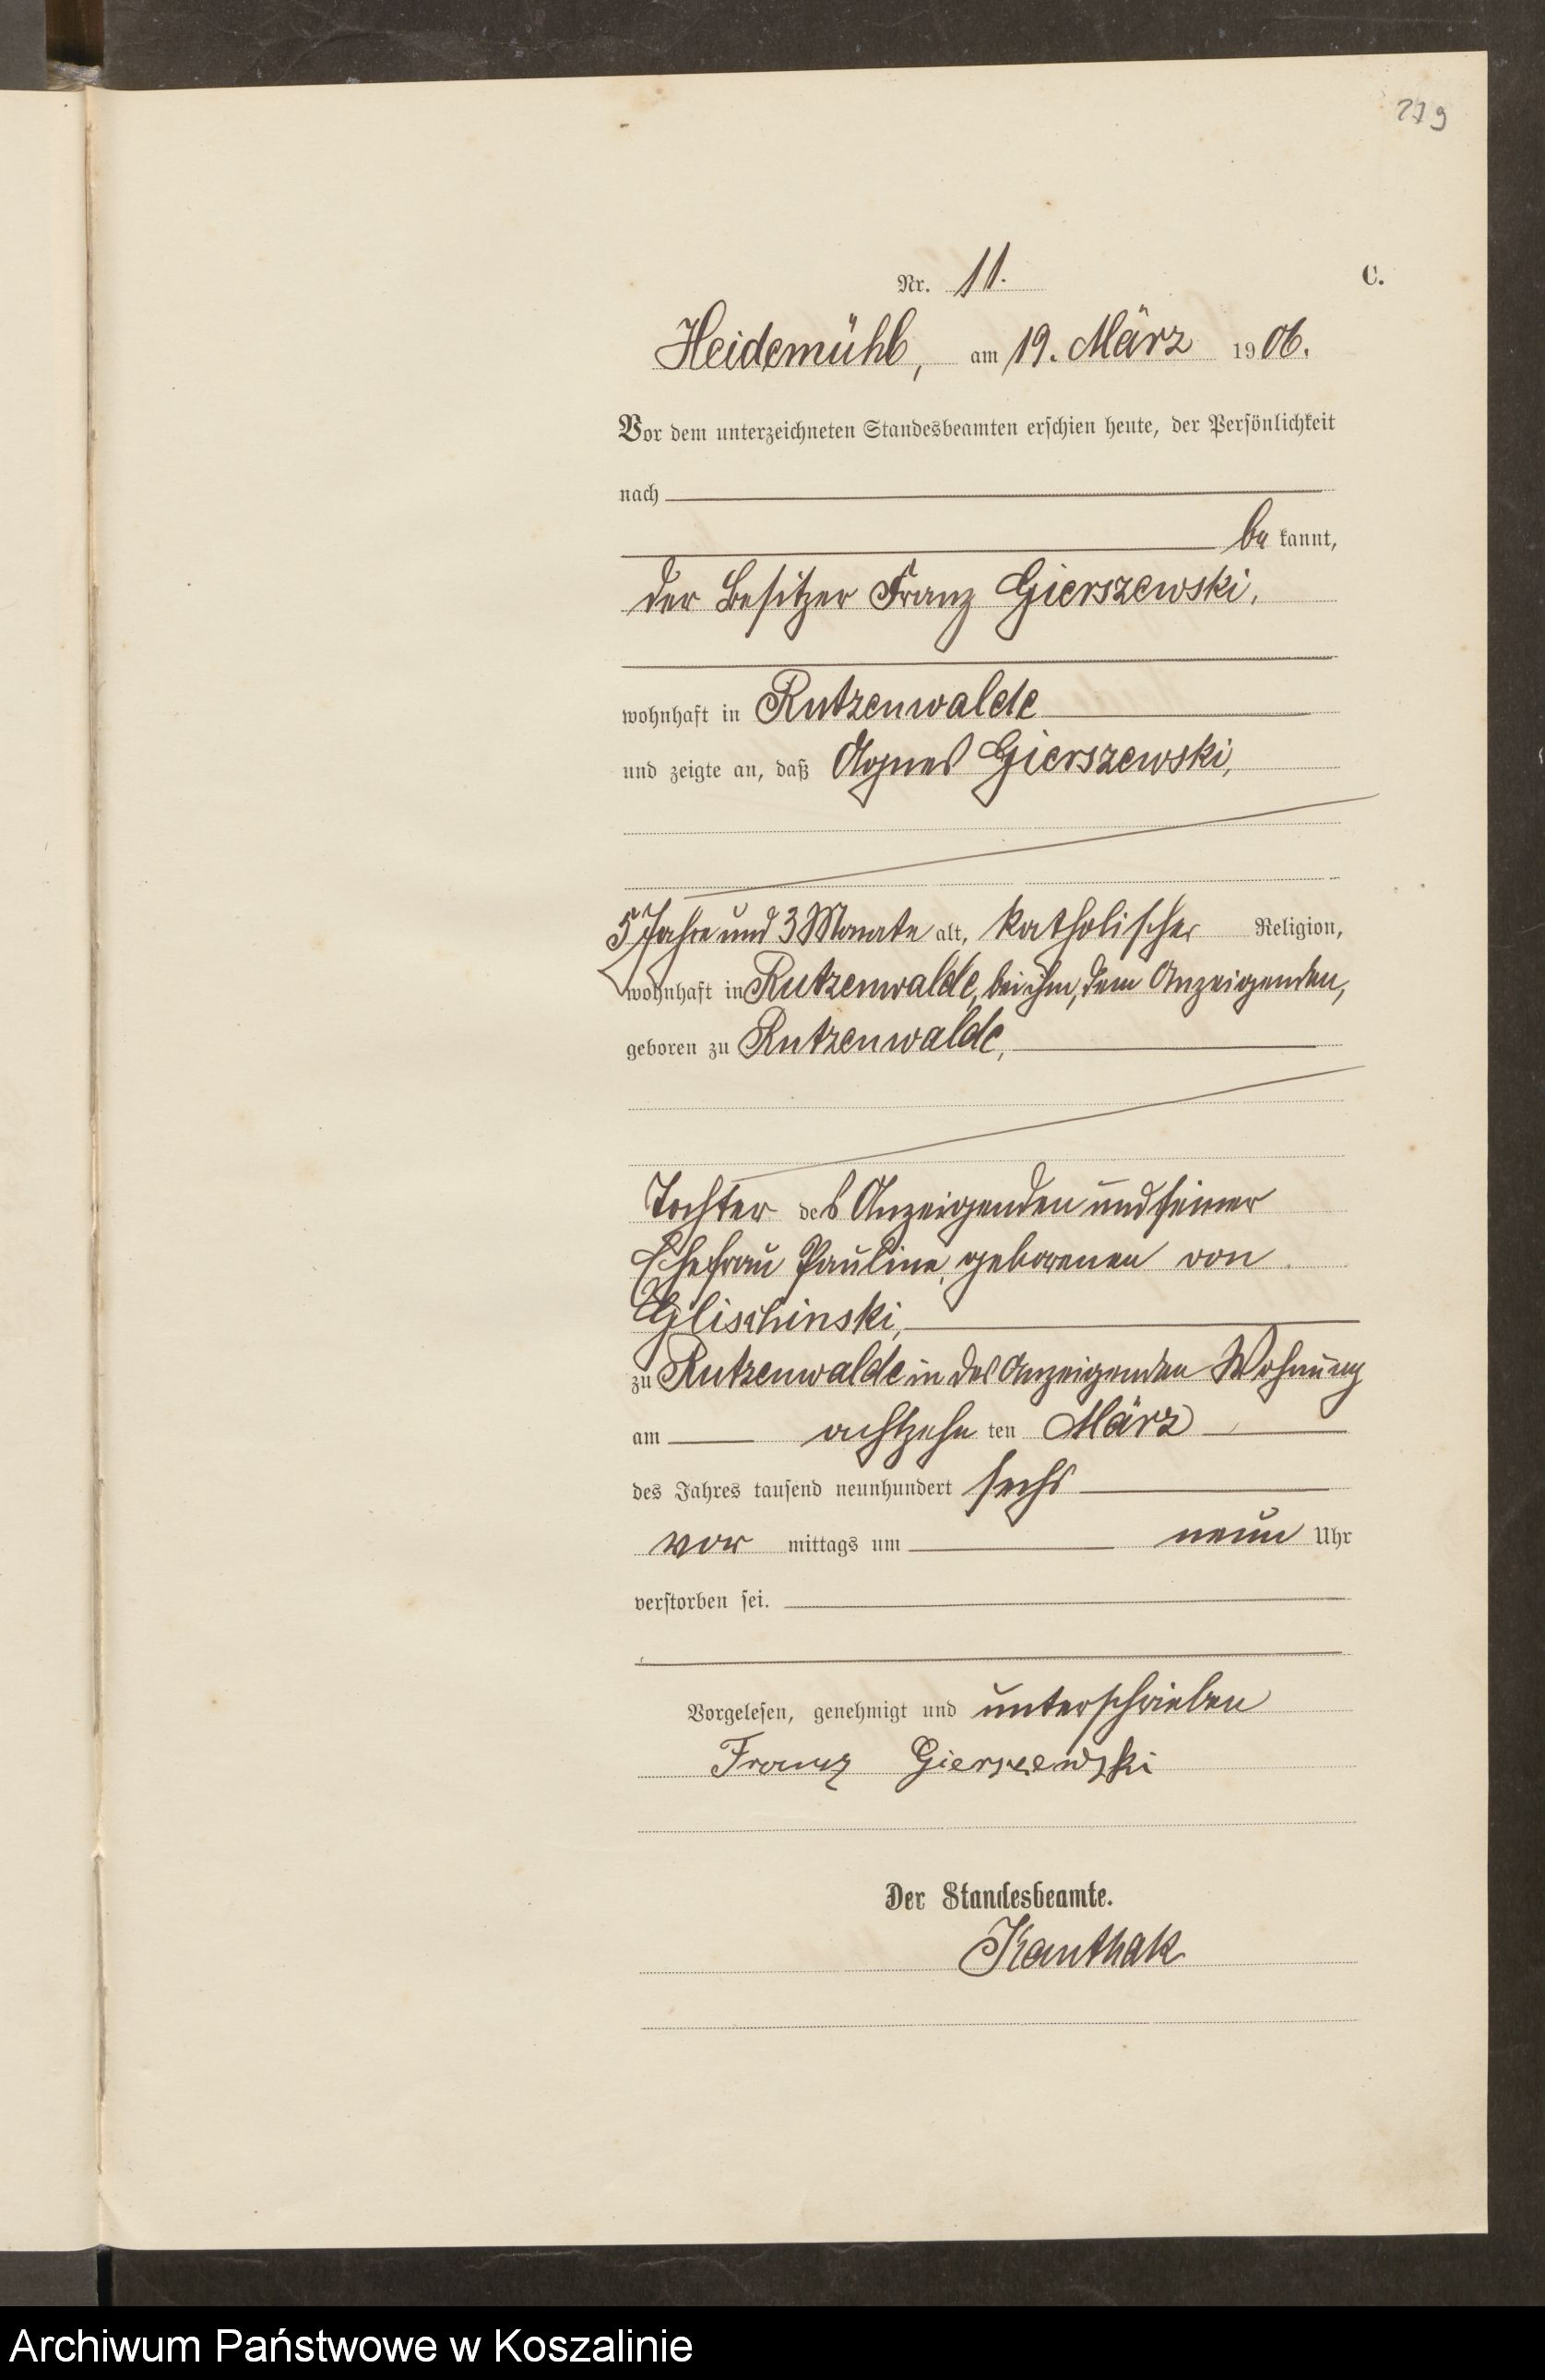 279
Nr. 11. C.
Heidemühl, am 19. März 1906.
Vor dem unterzeichneten Standesbeamten erschien heute, der Persönlichkeit
nach
be kannt,
der Besitzer Franz Gierszewski,
wohnhaft in Rutzenwalde
und zeigte an, daß Agnes Gierszewski,
5 Jahre und 3 Monate alt, katholischer Religion,
wohnhaft in Rutzenwalde, bei ihm, dem Anzeigenden,
geboren zu Rutzenwalde,
Tochter des Anzeigenden und seiner
Ehefrau Pauline, geborenen von
Glischinski,
zu Rutzenwalde in des Anzeigenden Wohnung
am achtzehn ten März
des Jahres tausend neunhundert sechs
vor mittags um neun Uhr
verstorben sei.
Vorgelesen, genehmigt und unterschrieben
Franz Gierszewski
Der Standesbeamte.
Kanthak
Archiwum Państwowe w Koszalinie